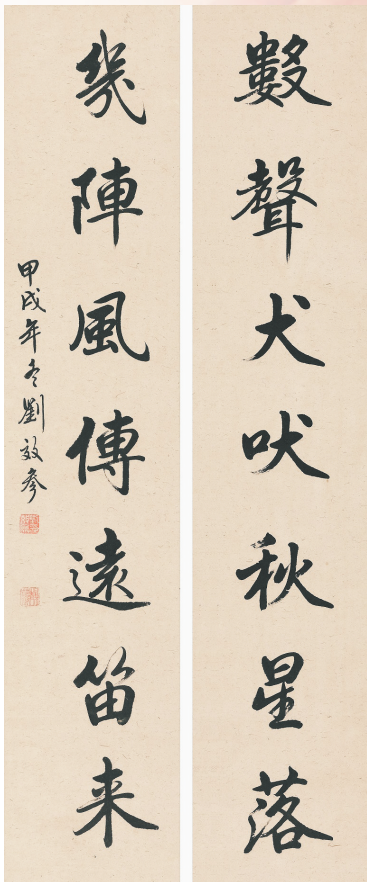 數聲犬吠秋星落
幾陣風傳遠笛来
甲戌年冬劉效參